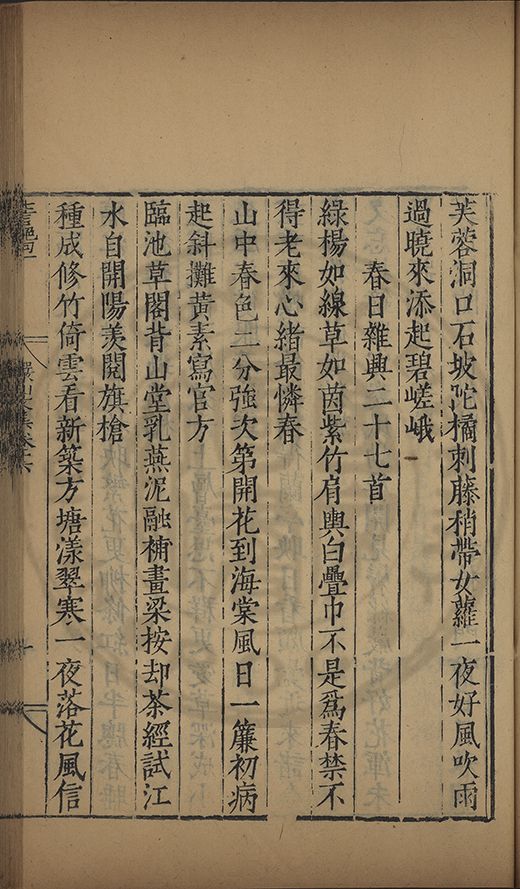 芙蓉洞口石坡陀橘刺藤稍帶女蘿一夜好風吹雨
過曉來添起碧嵯峨
春日雜興二十七首
綠楊如線草如茵紫竹肩輿白疊巾不是爲春禁不
得老來心緒最憐春
山中春色二分強次第開花到海棠風日一簾初病
起斜攤黃素寫官方
臨池草閣背山堂乳燕泥融補畫梁按却茶經試江
水自開陽羨閱旗槍
種成修竹倚雲看新築方塘漾翠寒一夜落花風信